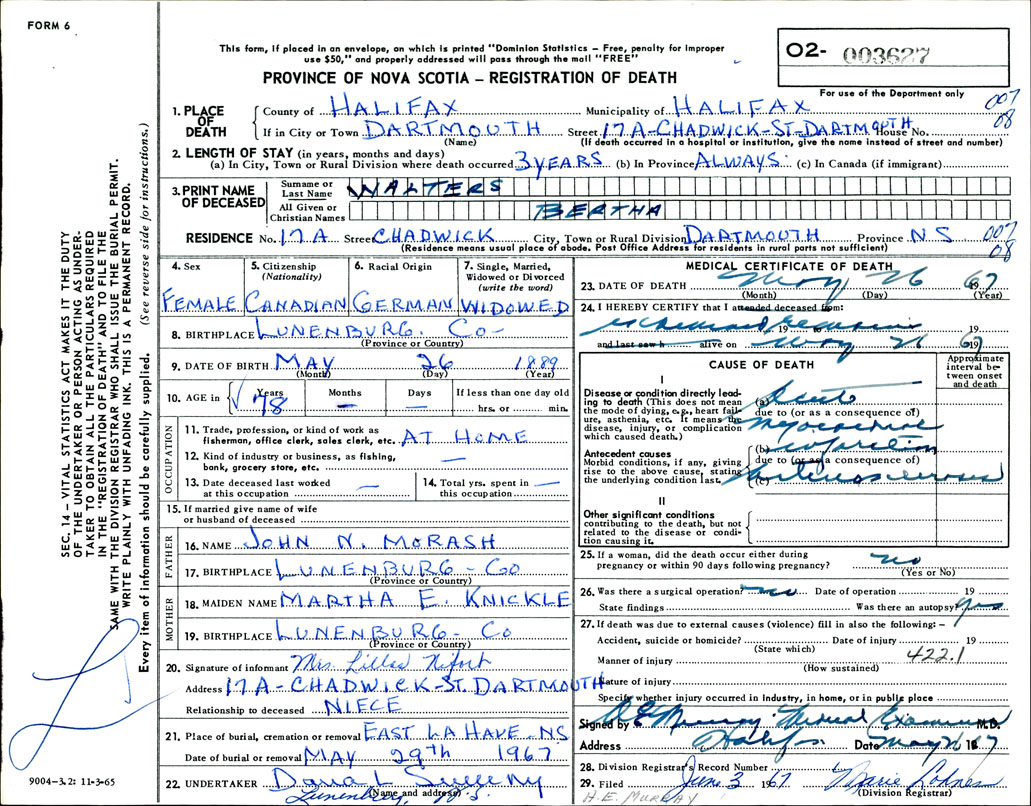 FORM 6
This form, if placed in an envelope, on which is printed "Dominion Statistics – Free, penalty for improper
use $50," and properly addressed will pass through the mail "FREE"
PROVINCE OF NOVA SCOTIA – REGISTRATION OF DEATH
02- 003627
For use of the Department only
007
08
1. PLACE OF DEATH
County of HALIFAX Municipality of HALIFAX
If in City or Town DARTMOUTH Street 17 A-CHADWICK-ST-DARTMOUTH House No.
(Name) (If death occurred in a hospital or institution, give the name instead of street and number)
2. LENGTH OF STAY (in years, months and days)
(a) In City, Town or Rural Division where death occurred 3 YEARS (b) In Province ALWAYS. (c) In Canada (if immigrant)
3. PRINT NAME OF DECEASED
Surname or Last Name WALTERS
All Given or Christian Names BERTHA
RESIDENCE No. 17 A Street CHADWICK City, Town or Rural Division DARTMOUTH Province NS
007
08
(Residence means usual place of abode. Post Office Address for residents in rural parts not sufficient)
4. Sex
FEMALE
5. Citizenship (Nationality)
CANADIAN
6. Racial Origin
GERMAN
7. Single, Married, Widowed or Divorced (write the word)
WIDOWED
8. BIRTHPLACE LUNENBURG. CO-
(Province or Country)
9. DATE OF BIRTH MAY 26 1889
(Month) (Day) (Year)
10. AGE in Years 78 Months — Days — If less than one day old hrs. or min.
OCCUPATION
11. Trade, profession, or kind of work as fisherman, office clerk, sales clerk, etc. AT HOME
12. Kind of industry or business, as fishing, bank, grocery store, etc. —
13. Date deceased last worked at this occupation —
14. Total yrs. spent in this occupation —
15. If married give name of wife or husband of deceased
FATHER
16. NAME JOHN N. MORASH
17. BIRTHPLACE LUNENBURG-CO
(Province or Country)
MOTHER
18. MAIDEN NAME MARTHA E. KNICKLE
19. BIRTHPLACE LUNENBURG- CO
(Province or Country)
20. Signature of informant Mrs.
Address 17 A-CHADWICK-ST. DARTMOUTH
Relationship to deceased NIECE
21. Place of burial, cremation or removal EAST LA HAVE-NS
Date of burial or removal MAY 29th 1967
22. UNDERTAKER Dana L Sweeny
(Name and address)
Lunenburg, N.S.
MEDICAL CERTIFICATE OF DEATH
23. DATE OF DEATH May 26 67
(Month) (Day) (Year)
24. I HEREBY CERTIFY that I attended deceased from:
19 19
and last saw h alive on May 26 1967
CAUSE OF DEATH
Approximate interval between onset and death
I
Disease or condition directly leading to death (This does not mean the mode of dying, e.g., heart failure, asthenia, etc. It means the disease, injury, or complication which caused death.)
(a) Acute
due to (or as a consequence of)
myocardial
Antecedent causes
Morbid conditions, if any, giving rise to the above cause, stating the underlying condition last.
(b) infarction
due to (or as a consequence of)
(c) arteriosclerosis
II
Other significant conditions
contributing to the death, but not related to the disease or condition causing it.
25. If a woman, did the death occur either during pregnancy or within 90 days following pregnancy? no
(Yes or No)
26. Was there a surgical operation? no Date of operation 19
State findings Was there an autopsy? yes
27. If death was due to external causes (violence) fill in also the following: –
Accident, suicide or homicide? Date of injury 19
(State which)
422.1
Manner of injury
(How sustained)
Nature of injury
Specify whether injury occurred in Industry, in home, or in public place
Signed by H E Murray Medical Examiner M.D.
Address Halifax Date May 26 1967
28. Division Registrar's Record Number
29. Filed June 3 1967 Marie
(Division Registrar)
H.E. MURRAY
SEC. 14 – VITAL STATISTICS ACT MAKES IT THE DUTY
OF THE UNDERTAKER OR PERSON ACTING AS UNDER-
TAKER TO OBTAIN ALL THE PARTICULARS REQUIRED
IN THE "REGISTRATION OF DEATH" AND TO FILE THE
SAME WITH THE DIVISION REGISTRAR WHO SHALL ISSUE THE BURIAL PERMIT.
WRITE PLAINLY WITH UNFADING INK. THIS IS A PERMANENT RECORD.
Every item of information should be carefully supplied. (See reverse side for instructions.)
9004-3.2: 11-3-65